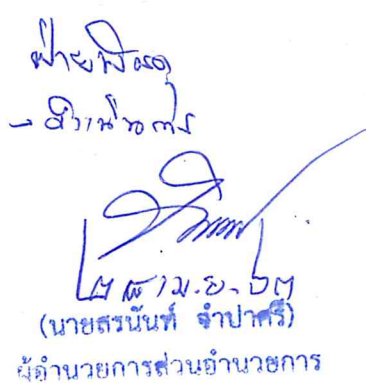 ฝ่ายพัสดุ
- ดำเนินการ
๒๘ เม.ย. ๖๓
(นายสรนันท์ จำปาศรี)
ผู้อำนวยการส่วนอำนวยการ